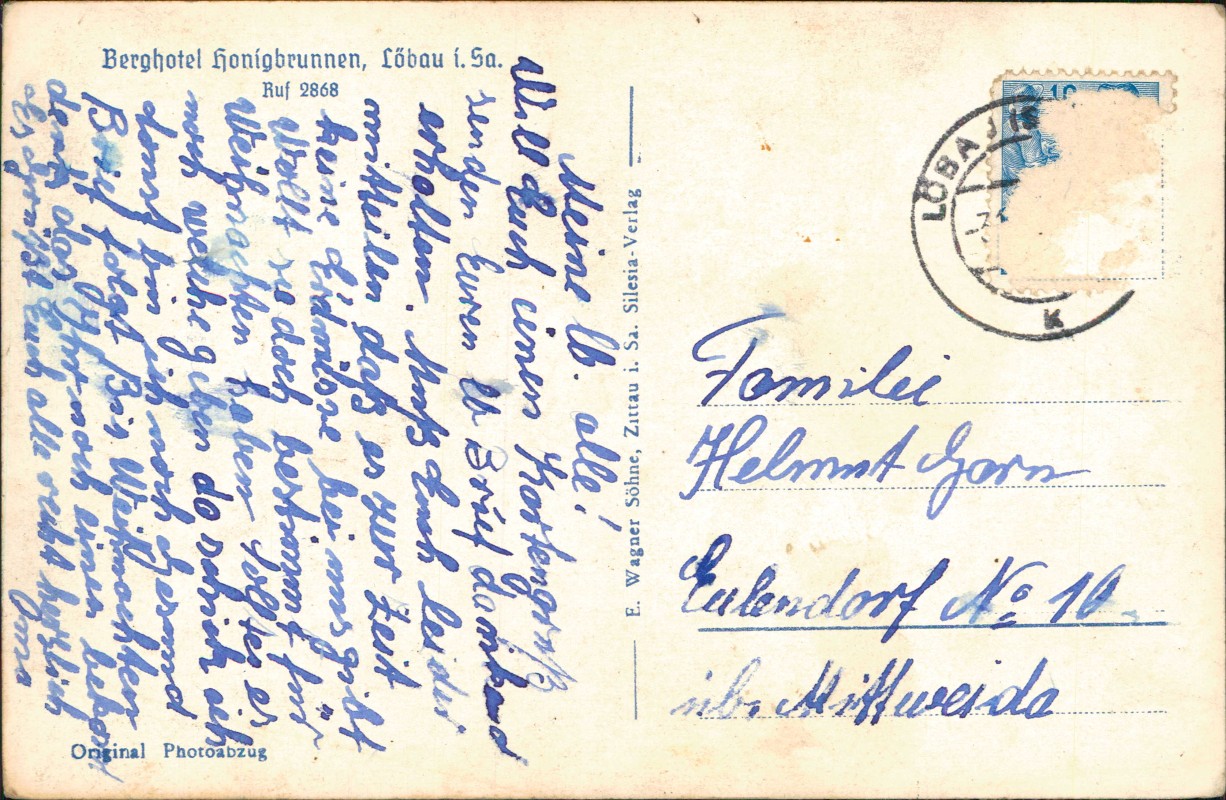 Berghotel Honigbrunnen, Löbau i. Sa.
Ruf 2868
Meine lb. alle!
Will Euch einen Kartengruß
senden Euren lb Brief dankend
erhalten. Muß Euch leider
mitteilen daß es zur Zeit
keine bei uns gibt
Wollt sie doch bestimmt für
Weihnachten haben
noch welche geben da schick ich
sonst bin ich noch gesund
Brief folgt Bis Weihnachten
denk das Ihr noch einen bekommt
Es grüßt Euch alle recht herzlich
Oma
Original Photoabzug
E. Wagner Söhne, Zittau i. Sa. Silesia-Verlag
LÖBAU
K
Familie
Helmut Garn
Eulendorf No 10
üb. Mittweida